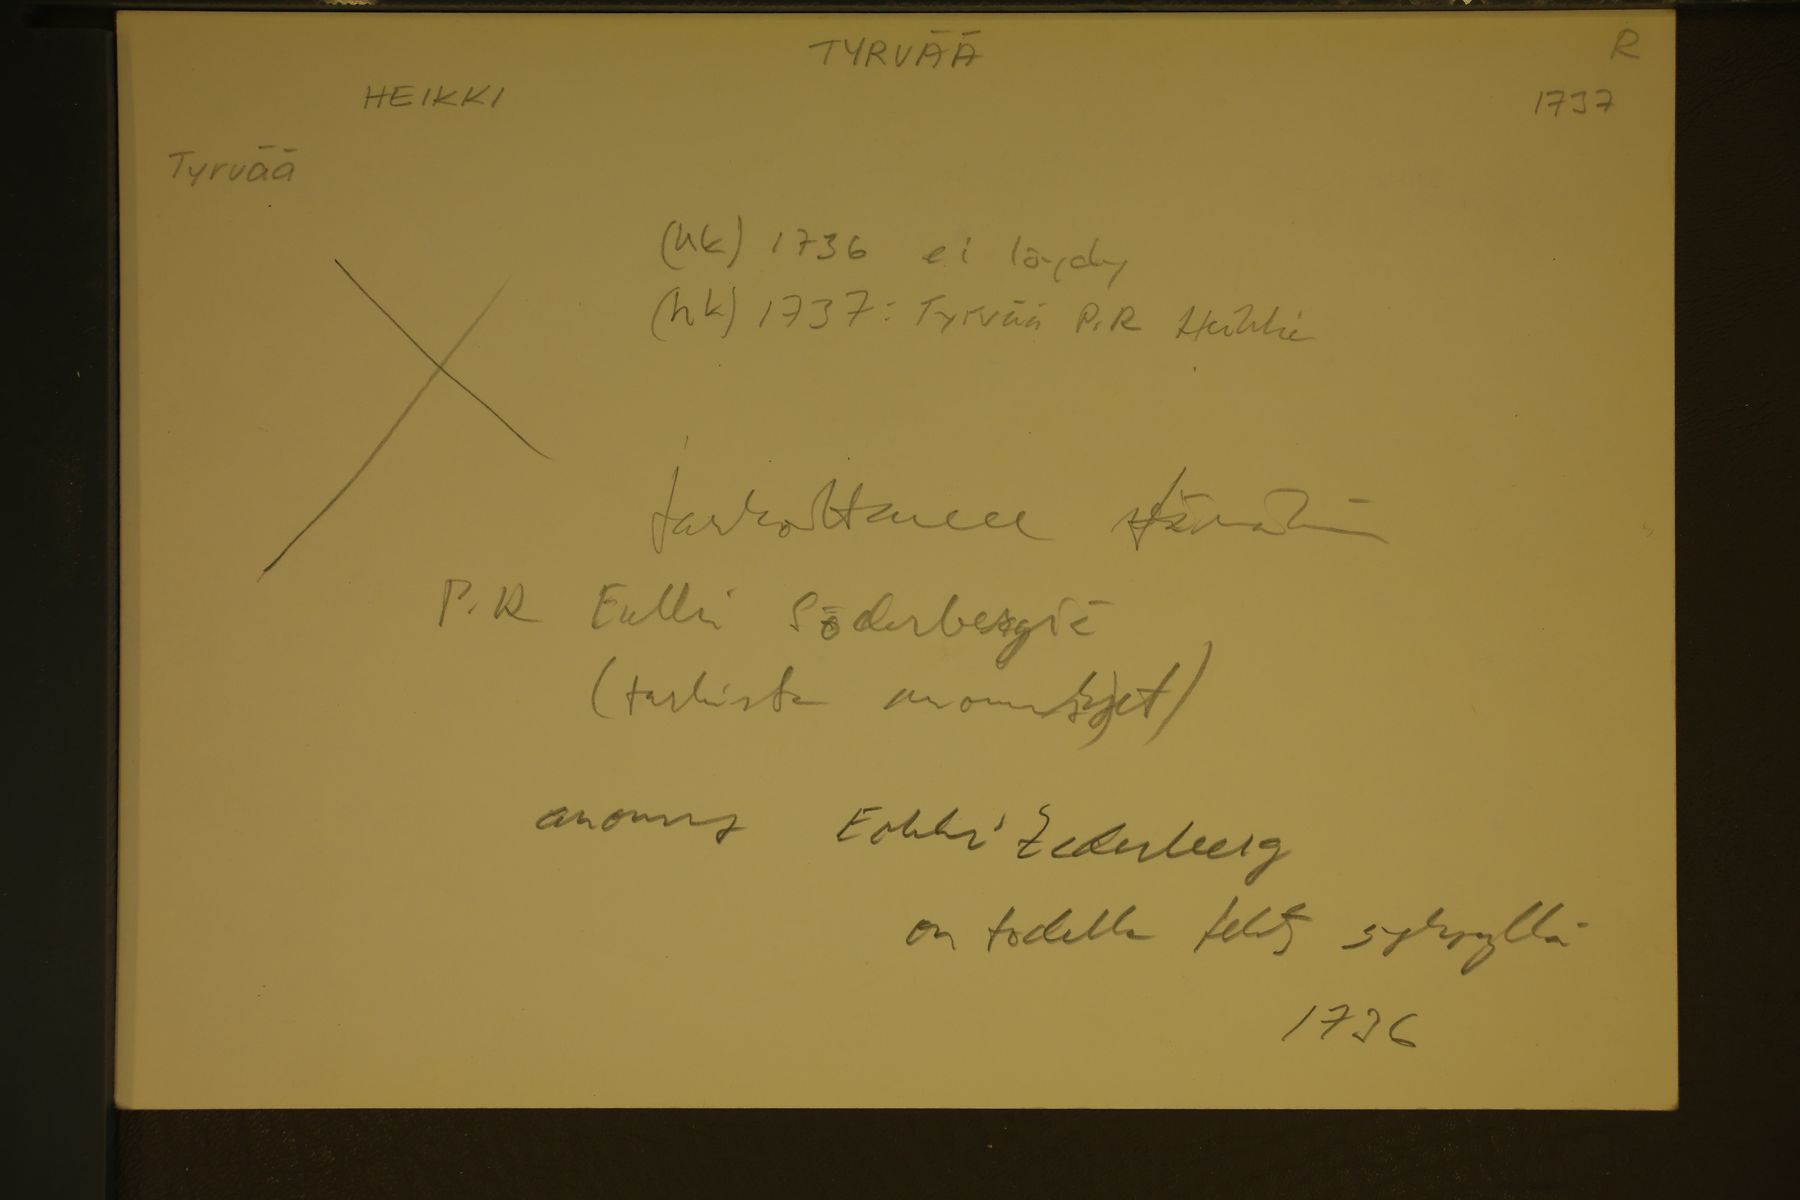 TYRVÄÄ
R
HEIKKI
1737
Tyrvää
(hk) 1736 ei löydy
(hk) 1737: Tyrvää P.R Heikki
tarkoittanee
P.R Erkki Söderbergiä
(tarkista anomukset)
anomus Erkki Zederberg
on todella tehty syksyllä
1736